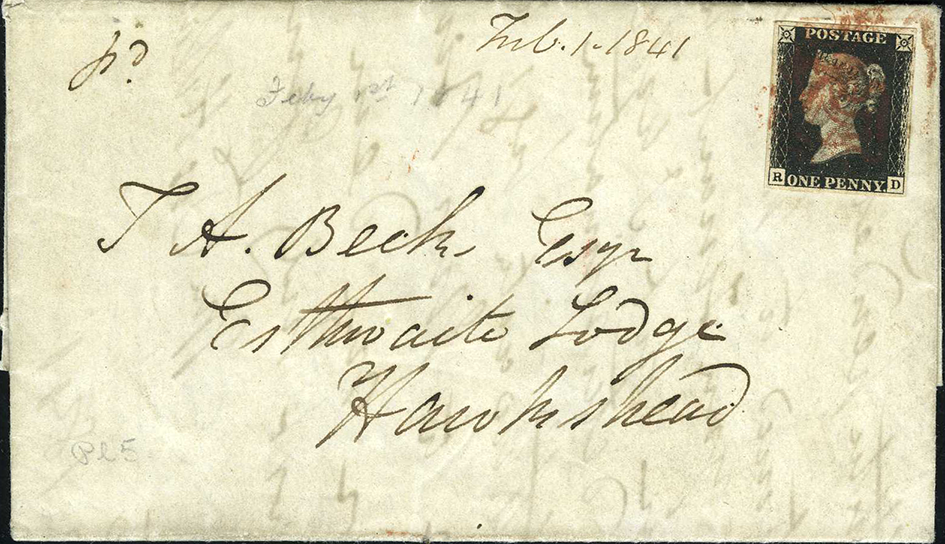 pd
Feb. 1. 1841
Feby 1st 1841
POSTAGE
R ONE PENNY D
T A. Beck Esqr
Esthwaite Lodge
Hawkshead
Pl 5